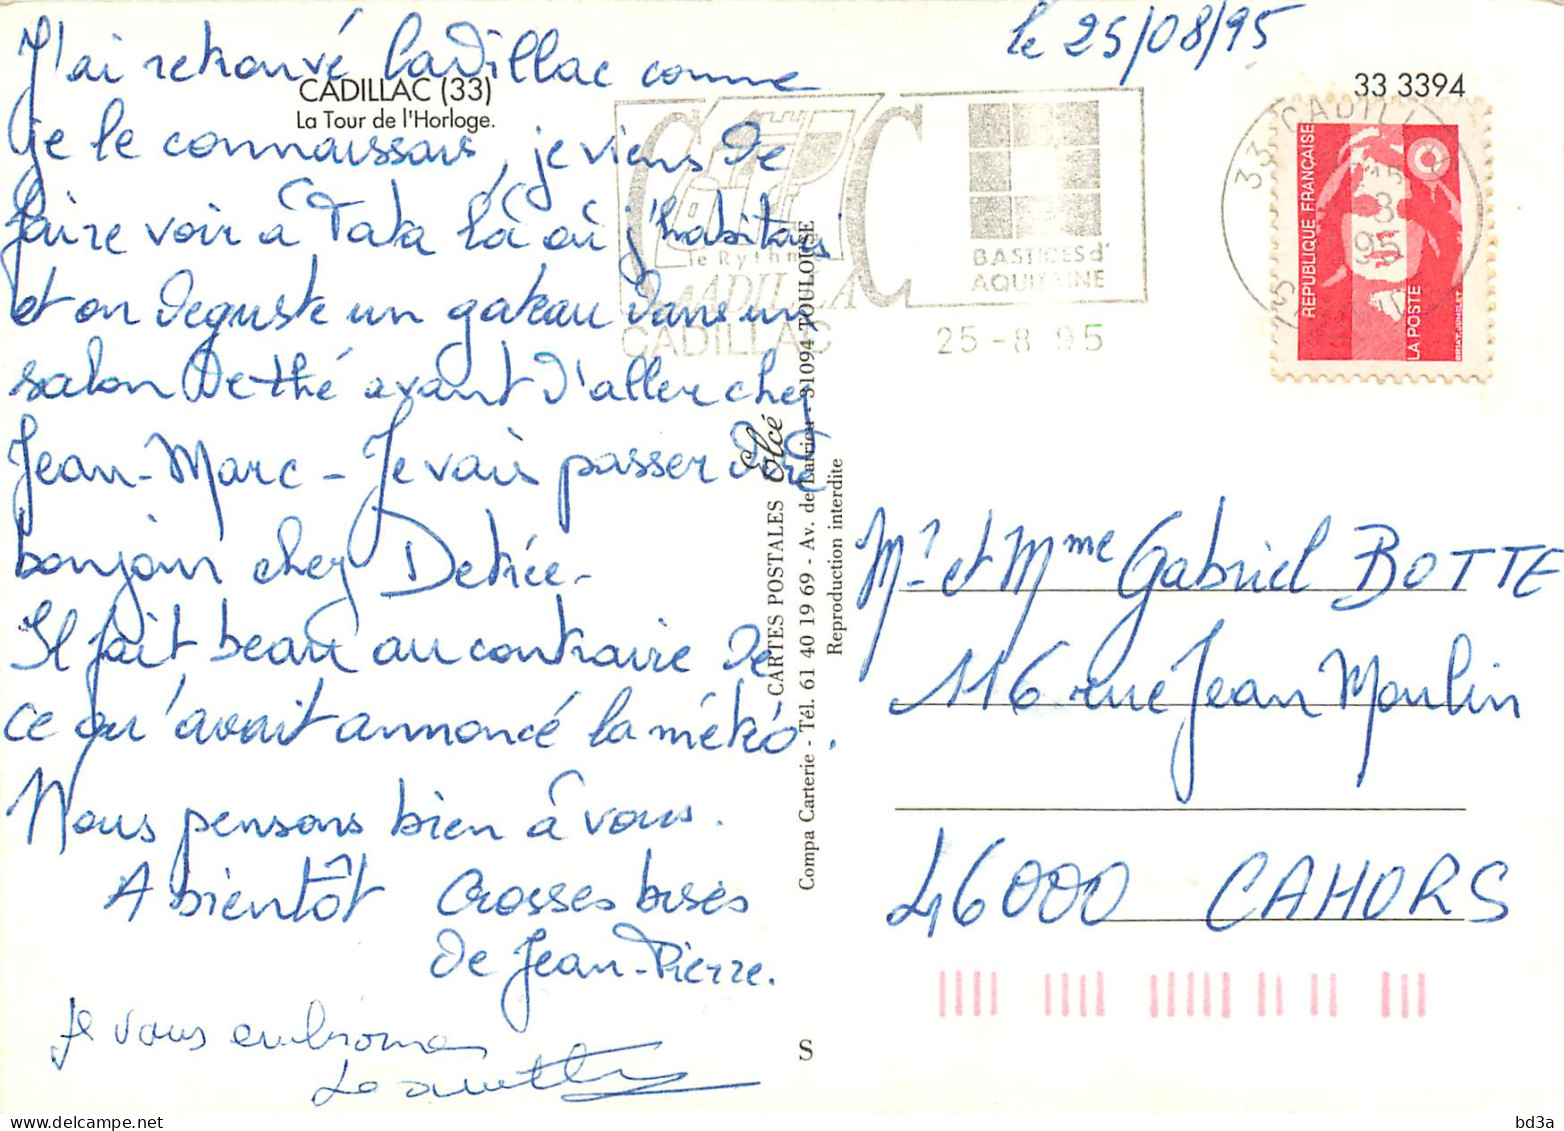 le 25/08/95
J'ai retrouvé Cadillac comme
je le connaissais, je viens de
faire voir à Tata là où j'habitais
et on déguste un gateau dans un
salon de thé avant d'aller chez
Jean-Marc - Je vais passer dire
bonjour chez Detrée -
Il fait beau au contraire de
ce qu'avait annoncé la météo.
Nous pensons bien à vous.
A bientôt Grosses bises
de Jean-Pierre.
Je vous
CADILLAC (33)
La Tour de l'Horloge.
33 3394
le Rythme
CADILLAC
BASTIDES d'
AQUITAINE
25-8 95
33 CADILLAC
25
8
95
REPUBLIQUE FRANÇAISE
LA POSTE
CARTES POSTALES Elcé
Compa Carterie - Tél. 61 40 19 69 - Av. de Larrieu - 31094 TOULOUSE
Reproduction interdite
Mr et Mme Gabriel BOTTE
116 rue Jean Moulin
46000 CAHORS
S
bd3a